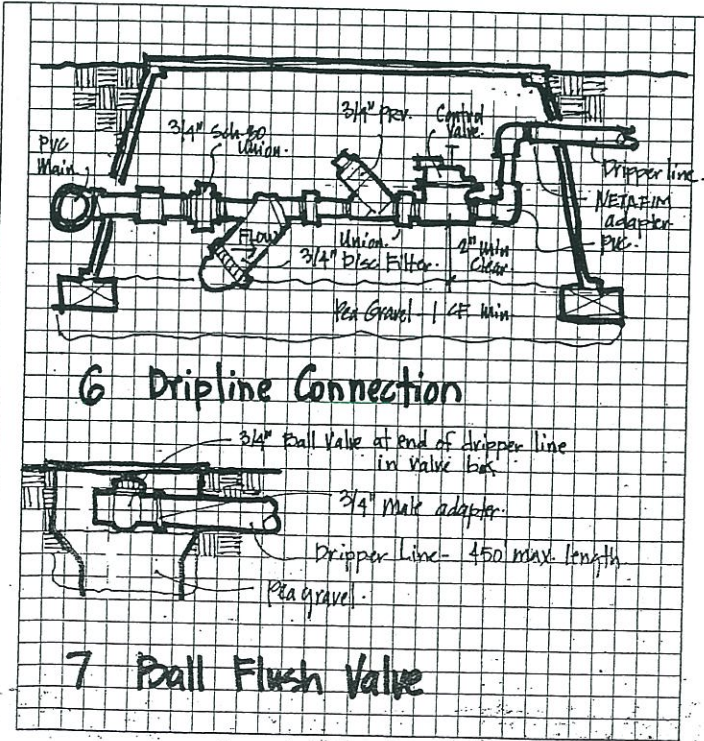 3/4" PRV.
Control
Valve.
3/4" Sch-80
Union.
PVC
Main
Dripper line.
NETAFIM
adapter
PVC.
Flow
Union.
3/4" Disc Filter.
2" min
Clear
Pea Gravel - 1 CF min
6 Dripline Connection
3/4" Ball Valve at end of dripper line
in valve box
3/4" Male adapter.
Dripper Line - 450' max. length
Pea gravel.
7 Ball Flush Valve